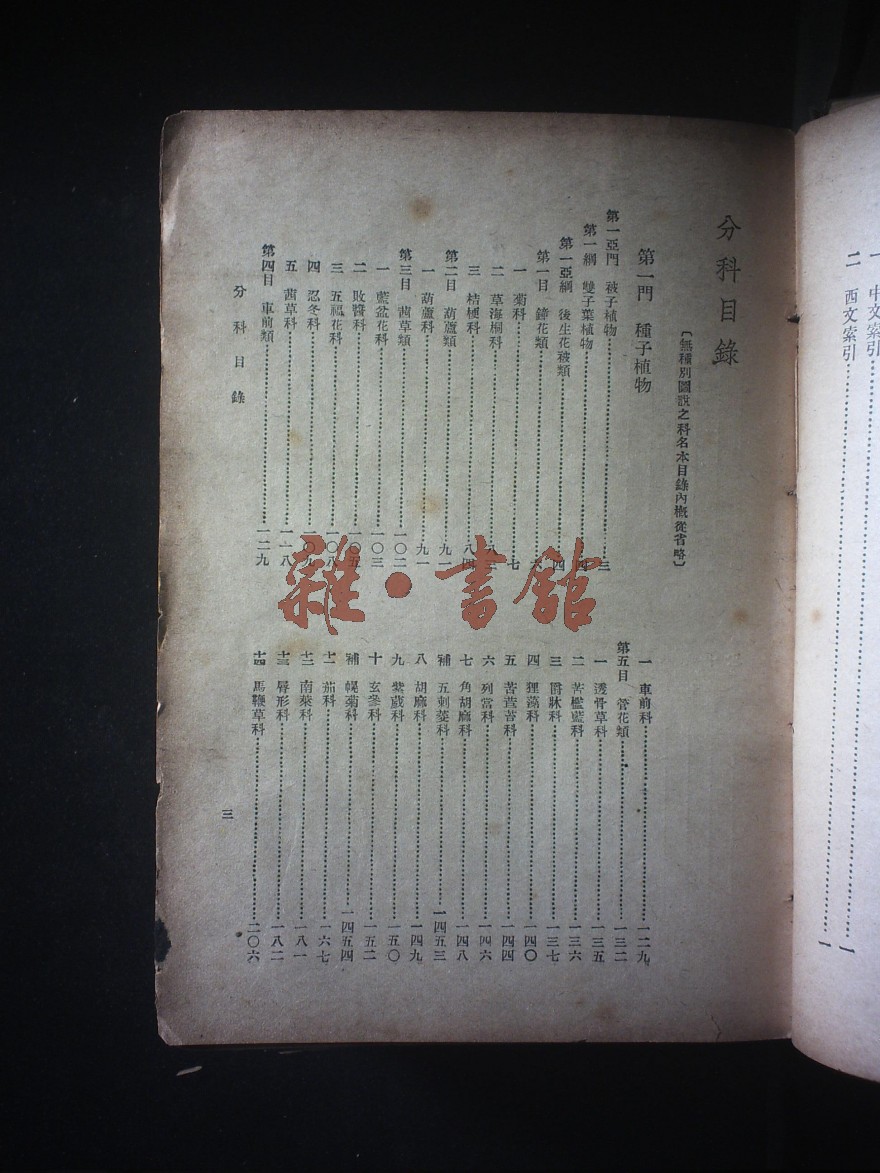 一 中文索引
二 西文索引……一
分科目錄
〔無種別圖說之科名本目錄內概從省略〕
第一門 種子植物
第一亞門 被子植物……三
第一綱 雙子葉植物……四
第一亞綱 後生花被類……四
第一目 鐘花類……六
一 菊科……七
二 草海桐科……八三
三 桔梗科……八四
第二目 葫蘆類……九一
一 葫蘆科……九一
第三目 茜草類……一〇二
一 藍盆花科……一〇三
二 敗醬科……一〇五
三 五福花科……一〇八
四 忍冬科……一〇九
五 茜草科……一一八
第四目 車前類……一二九
一 車前科……一二九
第五目 管花類……一三二
一 透骨草科……一三五
二 苦檻藍科……一三六
三 爵牀科……一三七
四 狸藻科……一四〇
五 苦苣苔科……一四四
六 列當科……一四六
七 角胡麻科……一四八
補 五刺蔆科……一四五三
八 胡麻科……一四九
九 紫葳科……一五〇
十 玄參科……一五二
補 幌菊科……一四五四
十一 茄科……一六七
十二 南萊科……一八一
十三 脣形科……一八二
十四 馬鞭草科……二〇六
分科目錄
三
雜·書館